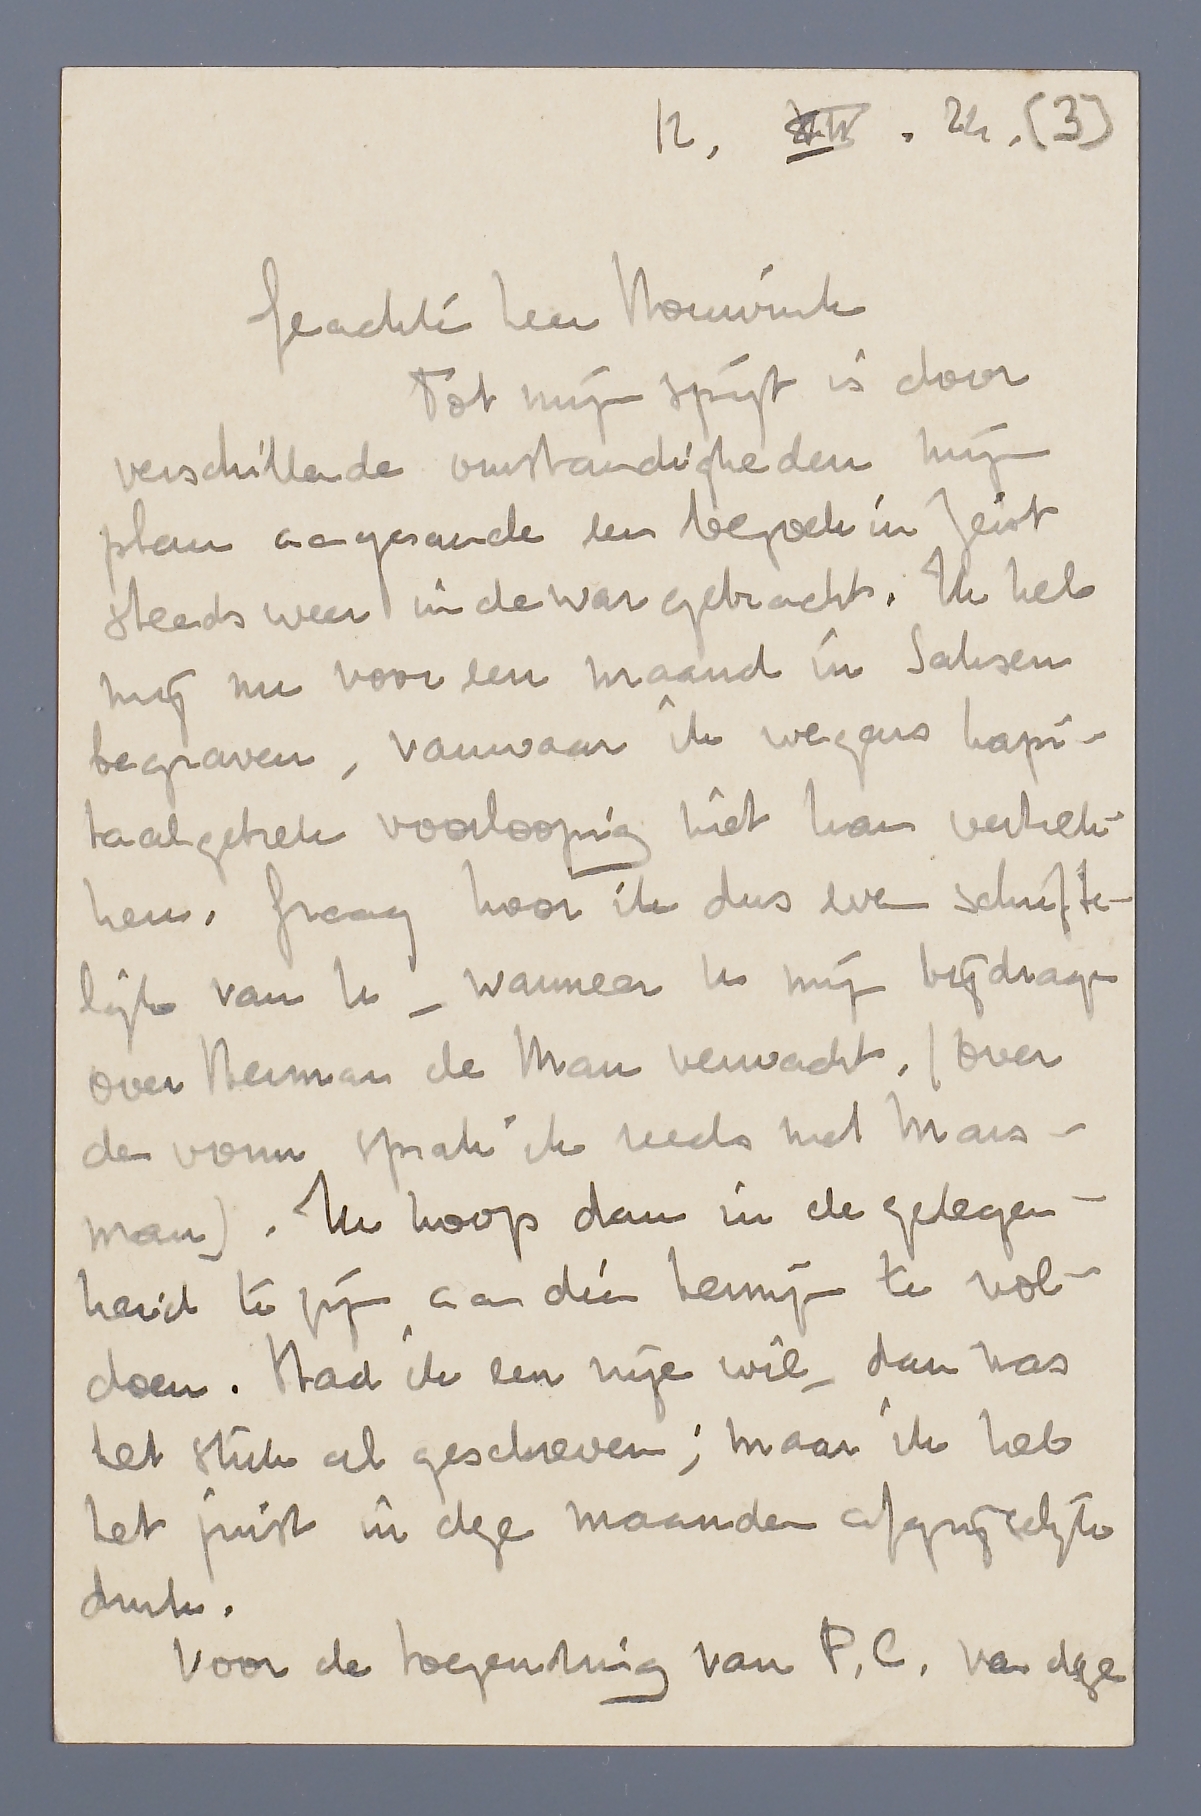 12. XII. 24. (3)
Geachte heer Houwink
Tot mijn spijt is door
verschillende omstandigheden mijn
plan aangaande een bezoek in Zeist
steeds weer in de war gebracht. Ik heb
mij nu voor een maand in Saksen
begraven, vanwaar ik wegens kapi-
taalgebrek voorloopig niet kan vertrek-
ken. Graag hoor ik dus even schrifte-
lijk van U – wanneer U mijn bijdrage
over Herman de Man verwacht. (over
den vorm sprak ik reeds met Mars-
man). Ik hoop dan in de gelegen-
heid te zijn aan dien termijn te vol-
doen. Had ik een vrije wil – dan was
het stuk al geschreven; maar ik heb
het juist in deze maanden afgrijselijk
druk.
Voor de toezending van P.C. van deze